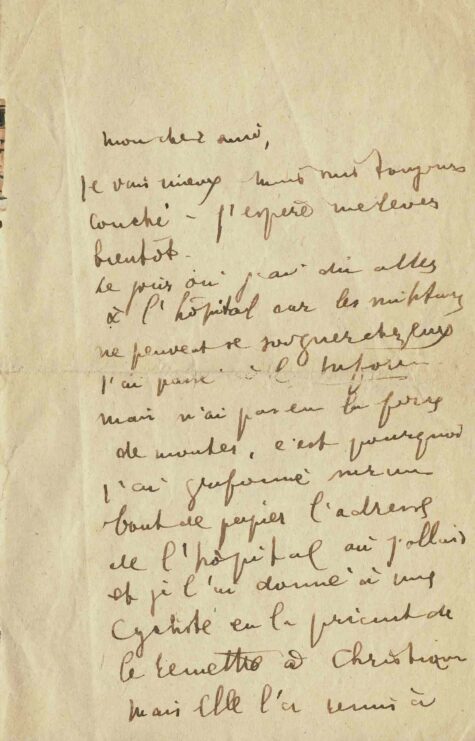 mon cher ami,
Je vais mieux mais suis toujours
couché - J'espère me lever
bientôt.
Le jour où j'ai dû aller
à l'hôpital car les militaires
ne peuvent se soigner chez eux
j'ai passé à l'
mais n'ai pas eu la force
de monter, c'est pourquoi
j'ai grifonné sur un
bout de papier l'adresse
de l'hôpital où j'allais
et je l'ai donné à une
cycliste en la priant de
le remettre à Christian
mais Elle l'a remis à